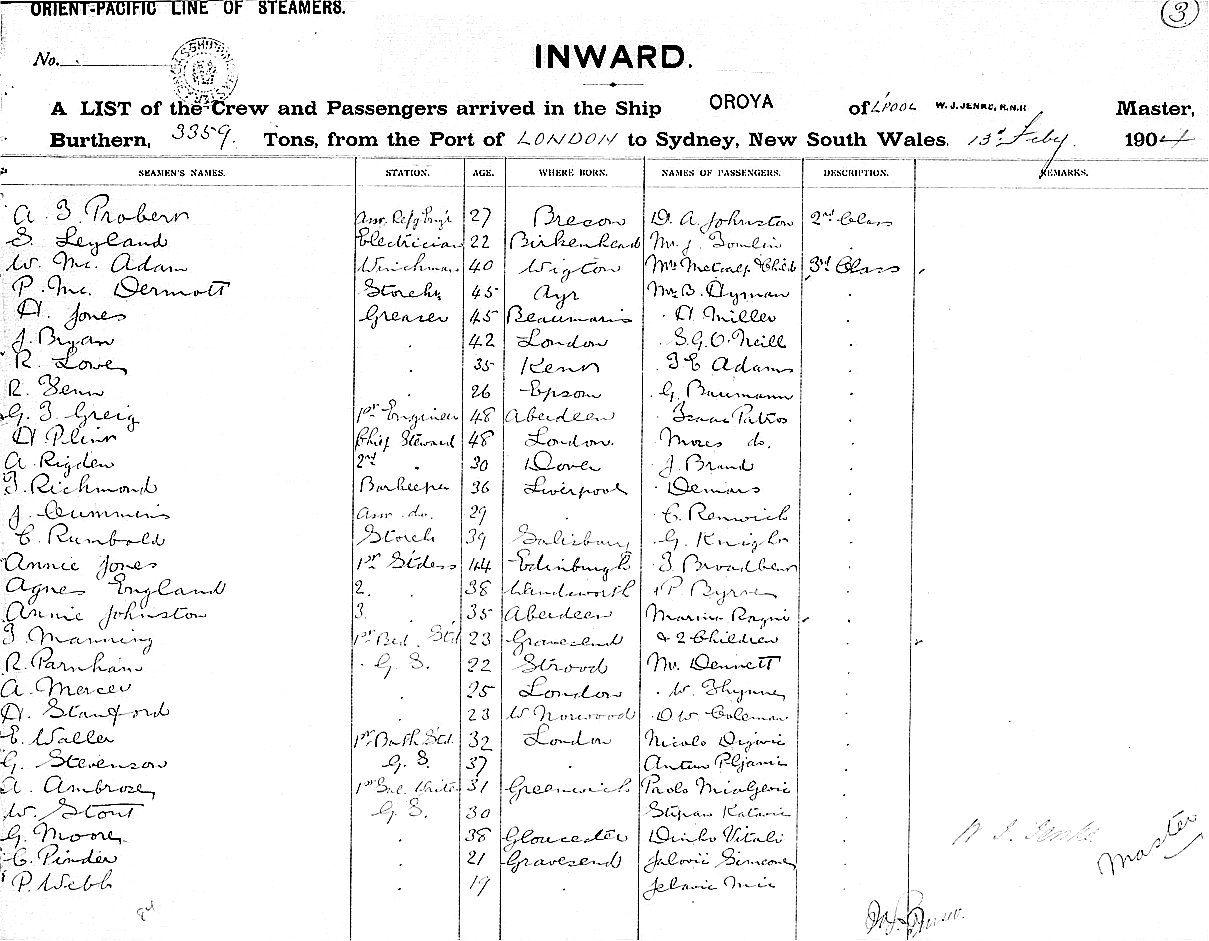 ORIENT-PACIFIC LINE OF STEAMERS.
3
No.
INWARD.
A LIST of the Crew and Passengers arrived in the Ship OROYA of L'POOL W. J. JENKS, R.N.R Master,
Burthern, 3359. Tons, from the Port of LONDON to Sydney, New South Wales. 13th Feby. 1904
SEAMEN'S NAMES. STATION. AGE. WHERE BORN. NAMES OF PASSENGERS. DESCRIPTION. REMARKS.
A. F. Probern 27 Brecon D. A. Johnston 2nd Class
S. Leyland Electrician 22 Birkenhead Mr J. Tomlin .
W. Mc. Adam Winchman 40 Wigton Mrs Metcalf & Child 3rd Class
P. Mc. Dermott 45 Ayr Mr B. Hyman .
H. Jones Greaser 45 Beaumaris H Miller .
J. Bryan . 42 London S. G. O. Neill .
R. Lowe . 35 Kenn F E Adams .
R. Fenn . 26 Epsom G. Baumann .
G. F. Greig 1st Engineer 48 Aberdeen Isaac Patros .
H Plinn Chief Steward 48 London Moses do. .
A. Rigden 2nd . 30 Dover J. Brand .
F. Richmond Barkeeper 36 Liverpool Demars .
J. Cummins Asst do. 29 . C. Renwick .
C. Rumbold Storek 39 Salisbury G. Knight .
Annie Jones 1st Stdess 44 Edinburgh F Broadbear .
Agnes England 2. . 38 Wandsworth P. Byrne .
Annie Johnston 3. . 35 Aberdeen .
F. Manning 1st Bed. Std 23 Gravesend & 2 Children .
R. Parnham . G. S. 22 Strood Mr. Dennett .
A. Mercer . 25 London W. Thynne .
H. Stanford . 23 W Norwood D W Coleman .
E. Waller 1st Bath Std. 32 London Nicolo .
G. Stevenson G. S. 37 . Antun .
A. Ambrose 31 Greenwich Paolo .
W. Stout G. S. 30 . Stipan Katavic .
G. Moore . 38 Gloucester Dinko Vitali .
C. Pinder . 21 Gravesend Jalovic Simeone .
P. Webb . 19 . Jelavic .
W. J. Jenks
Master